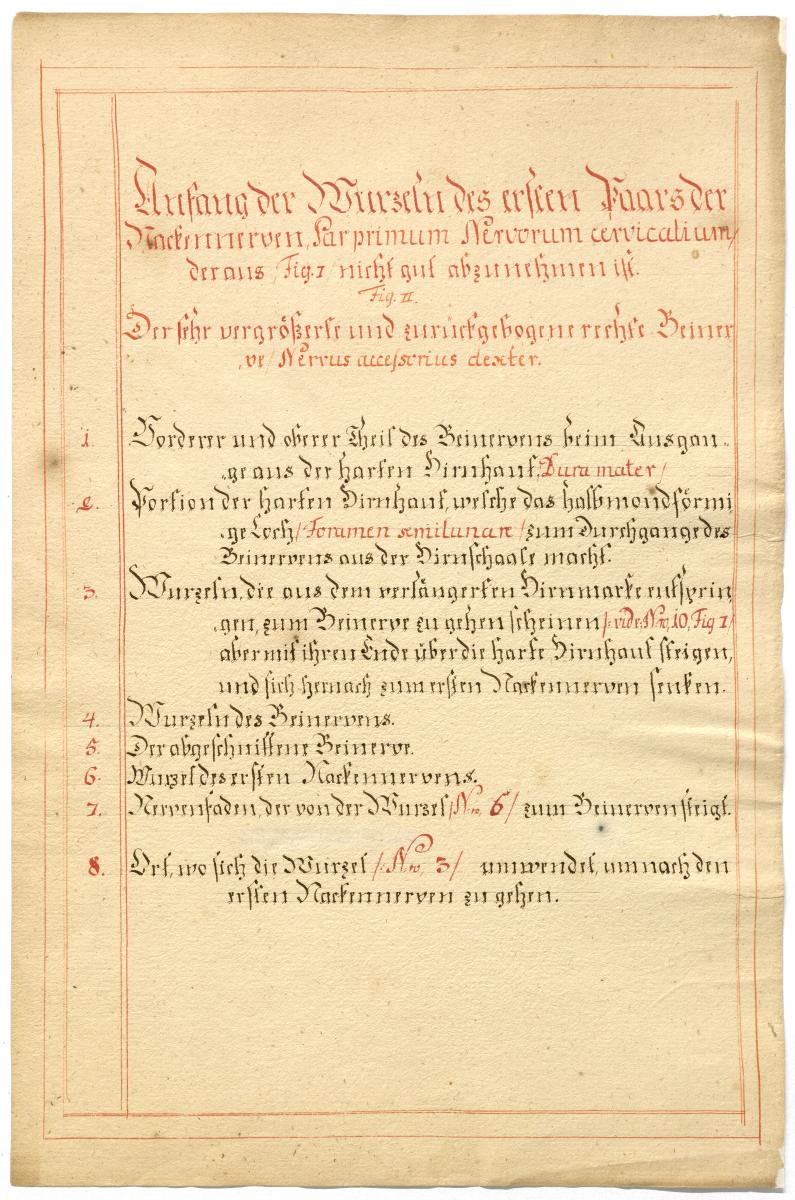 Anfang der Wurzeln des ersten Paars der
Nackennerven, Par primum Nervorum cervicalium/
der aus /Fig. I/ nicht gut abzunehmen ist.
Fig. II.
Der sehr vergrößerte und zurückgebogene rechte Beiner
„ve/ Nervus accessorius dexter.
1. Vorderer und oberer Theil des Beinervens beim Ausgan„
„ge aus der harten Hirnhaut, Dura mater/
2. Portion der harten Hirnhaut, welche das halbmondförmi
„ge Loch/ Foramen semilunare /zum Durchgange des
Beinervens aus der Hirnschaale macht.
3. Wurzeln, die aus dem verlängerten Hirnmarke entsprin„
„gen, zum Beinerve zu gehen scheinen/: vide: Nro, 10, Fig I/
aber mit ihren Ende über die harte Hirnhaut steigen,
und sich hernach zum ersten Nackennerven senken.
4. Wurzeln des Beinervens.
5. Der abgeschnittene Beinerve.
6. Wurzel des ersten Nackennervens.
7. Nervenfaden, der von der Wurzel /Nro, 6/ zum Beinerven steigt.
8. Ort, wo sich die Wurzel /: Nro, 3/ umwendet, um nach den
ersten Nackennerven zu gehen.